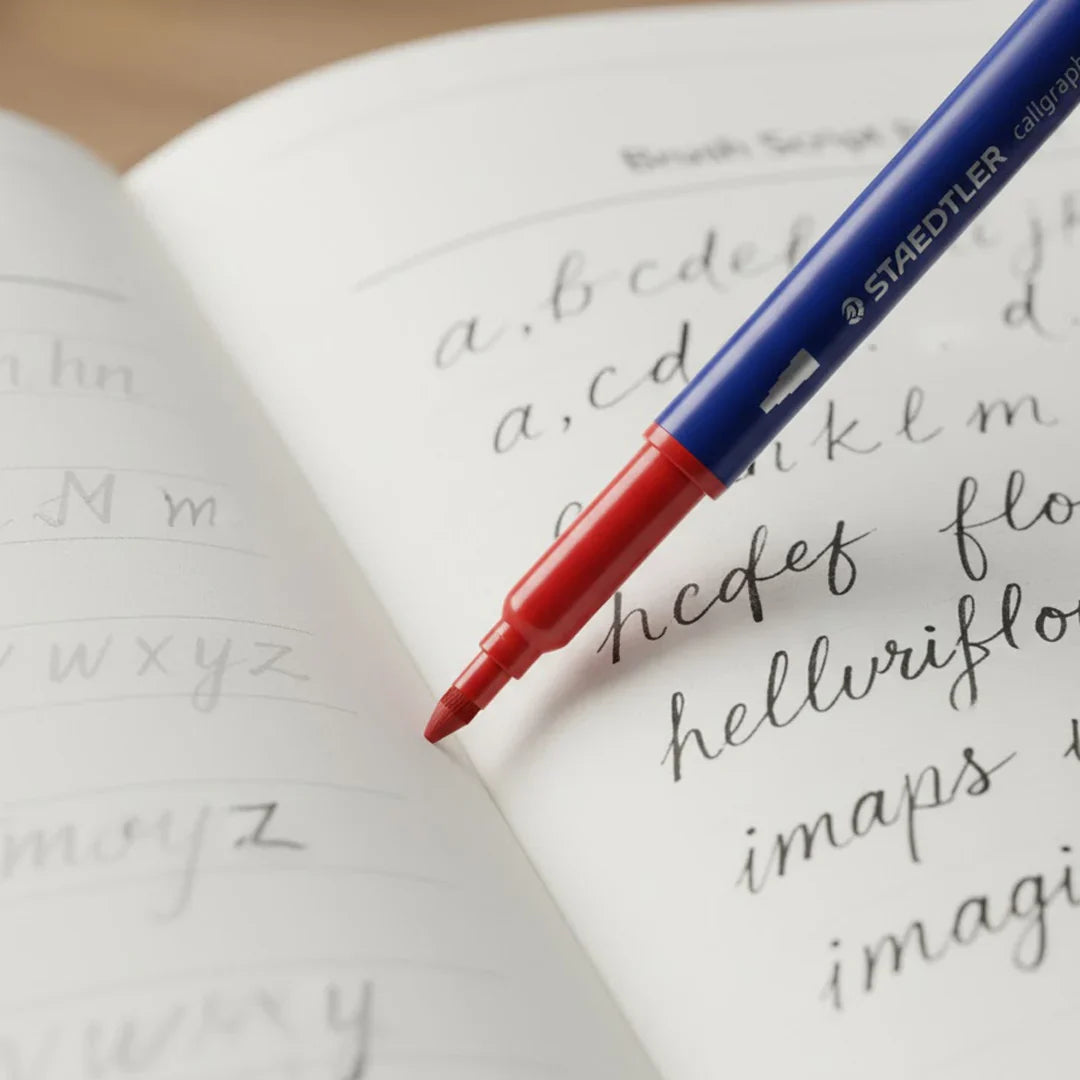 n hn
M m
w x y z
moyz
v w x y
Brush Script
a, b c d e f i j k
a, c d d
n k l m
hcdef flo
hellvriflo
imaps
imagi
STAEDTLER calligraph